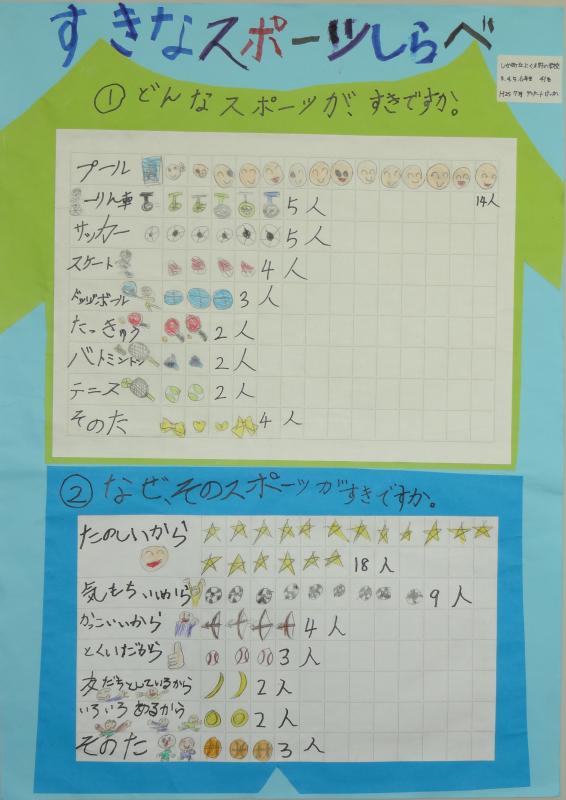 すきなスポーツしらべ
① どんなスポーツが、すきですか。
プール 14人
一りん車 5人
サッカー 5人
スケート 4人
ドッジボール 3人
たっきゅう 2人
バトミントン 2人
テニス 2人
そのた 4人
② なぜ、そのスポーツがすきですか。
たのしいから
18人
気もちいいから 9人
かっこいいから 4人
とくいだから 3人
友だちとしているから 2人
いろいろあるから 2人
そのた 3人